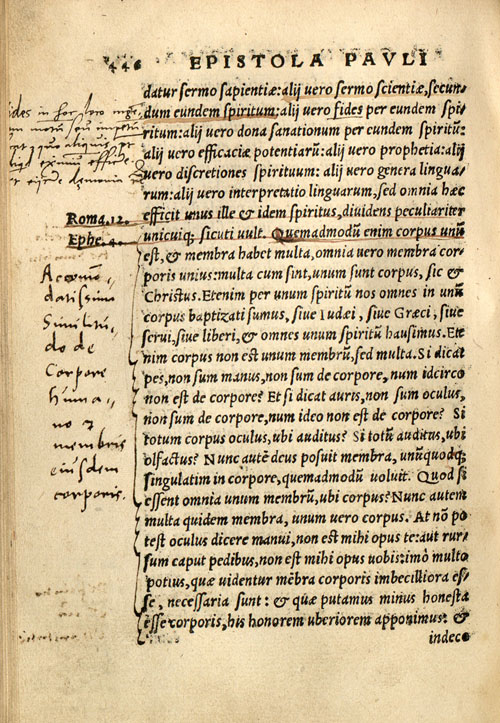 446 EPISTOLA PAVLI
datur sermo sapientiæ: alij vero sermo scientiæ, secun-
dum eundem spiritum: alij vero fides per eundem spi-
ritum: alij vero dona sanationum per eundem spiritũ:
alij vero efficaciæ potentiarũ: alij vero prophetia: alij
vero discretiones spirituum: alij vero genera lingua-
rum: alij vero interpretatio linguarum, sed omnia hæc
efficit unus ille & idem spiritus, dividens peculiariter
unicuiq; sicuti vult. Quemadmodũ enim corpus unũ
est, & membra habet multa, omnia vero membra cor-
poris unius: multa cum sint, unum sunt corpus, sic &
Christus. Etenim per unum spiritũ nos omnes in unũ
corpus baptizati sumus, sive Iudæi, sive Græci, sive
servi, sive liberi, & omnes unum spiritũ hausimus. Ete
nim corpus non est unum membrũ, sed multa. Si dicat
pes, non sum manus, non sum de corpore, num idcirco
non est de corpore? Et si dicat auris, non sum oculus,
non sum de corpore, num ideo non est de corpore? Si
totum corpus oculus, ubi auditus? Si totũ auditus, ubi
olfactus? Nunc autẽ deus posuit membra, unũquodq;
singulatim in corpore, quemadmodũ voluit. Quod si
essent omnia unum membrũ, ubi corpus? Nunc autem
multa quidem membra, unum vero corpus. At nõ po
test oculus dicere manui, non est mihi opus te: aut rur-
sum caput pedibus, non est mihi opus vobis: imò multo
potius, quæ videntur mẽbra corporis imbecilliora es-
se, necessaria sunt: & quæ putamus minus honesta
esse corporis, his honorem uberiorem apponimus: &
indeco
fides in hoc loco
Roma. 12.
Ephe. 4.
Accom̃o-
datissima
Similitu-
do de
Corpore
huma-
no &
membris
eiusdem
corporis.